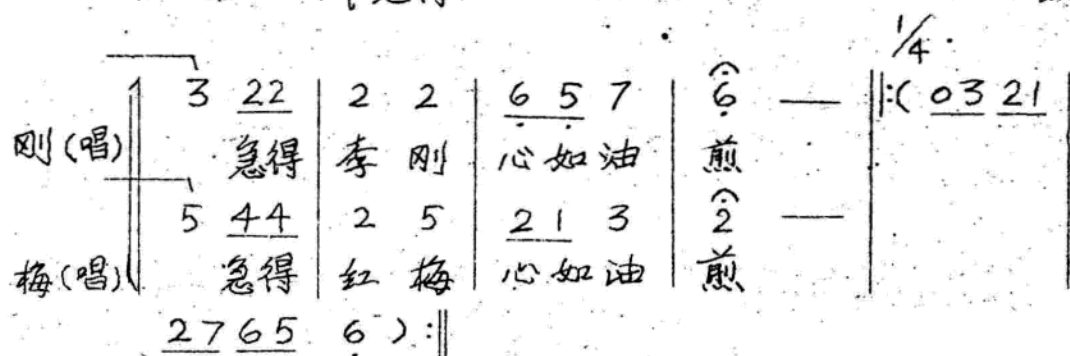 1/4
3 22 | 2 2 | 6 5 7 | 6 — |:( 03 21
刚(唱) 急得 李 刚 心如油 煎
5 44 | 2 5 | 2 1 3 | 2 —
梅(唱) 急得 红 梅 心如油 煎
27 65 6 ):‖